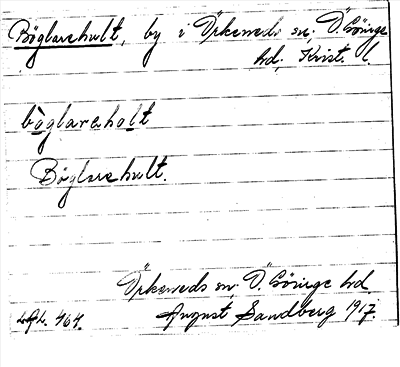 Böglarehult, by i Örkeneds sn, Ö. Göinge
hd, Krist. l
böglarehålt
Böglarehult.
Örkeneds sn, Ö. Göinge hd.
LAL. 464. August Sandberg 1917.